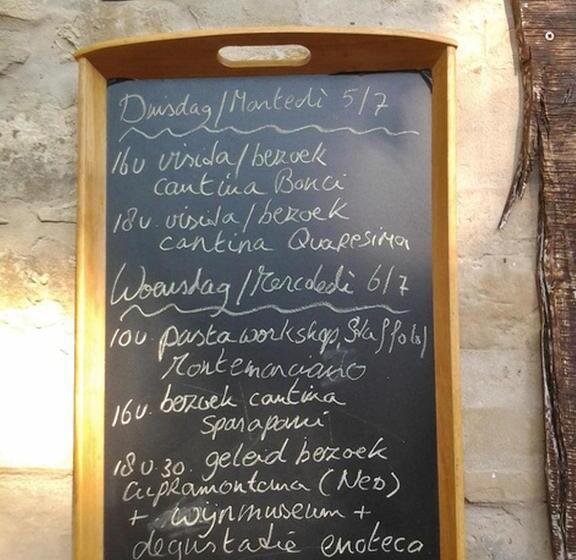 Dinsdag/Martedì 5/7
16u visida/bezoek
cantina Bonci
18u. visida/bezoek
cantina Quaresima
Woensdag/Mercdedì 6/7
10u pastaworkshop,
Montemarciano
16u. bezoek cantina
Sparapani
18u.30. geleid bezoek
Cupramontana (Ned)
+ wijnmuseum +
degustatie enoteca